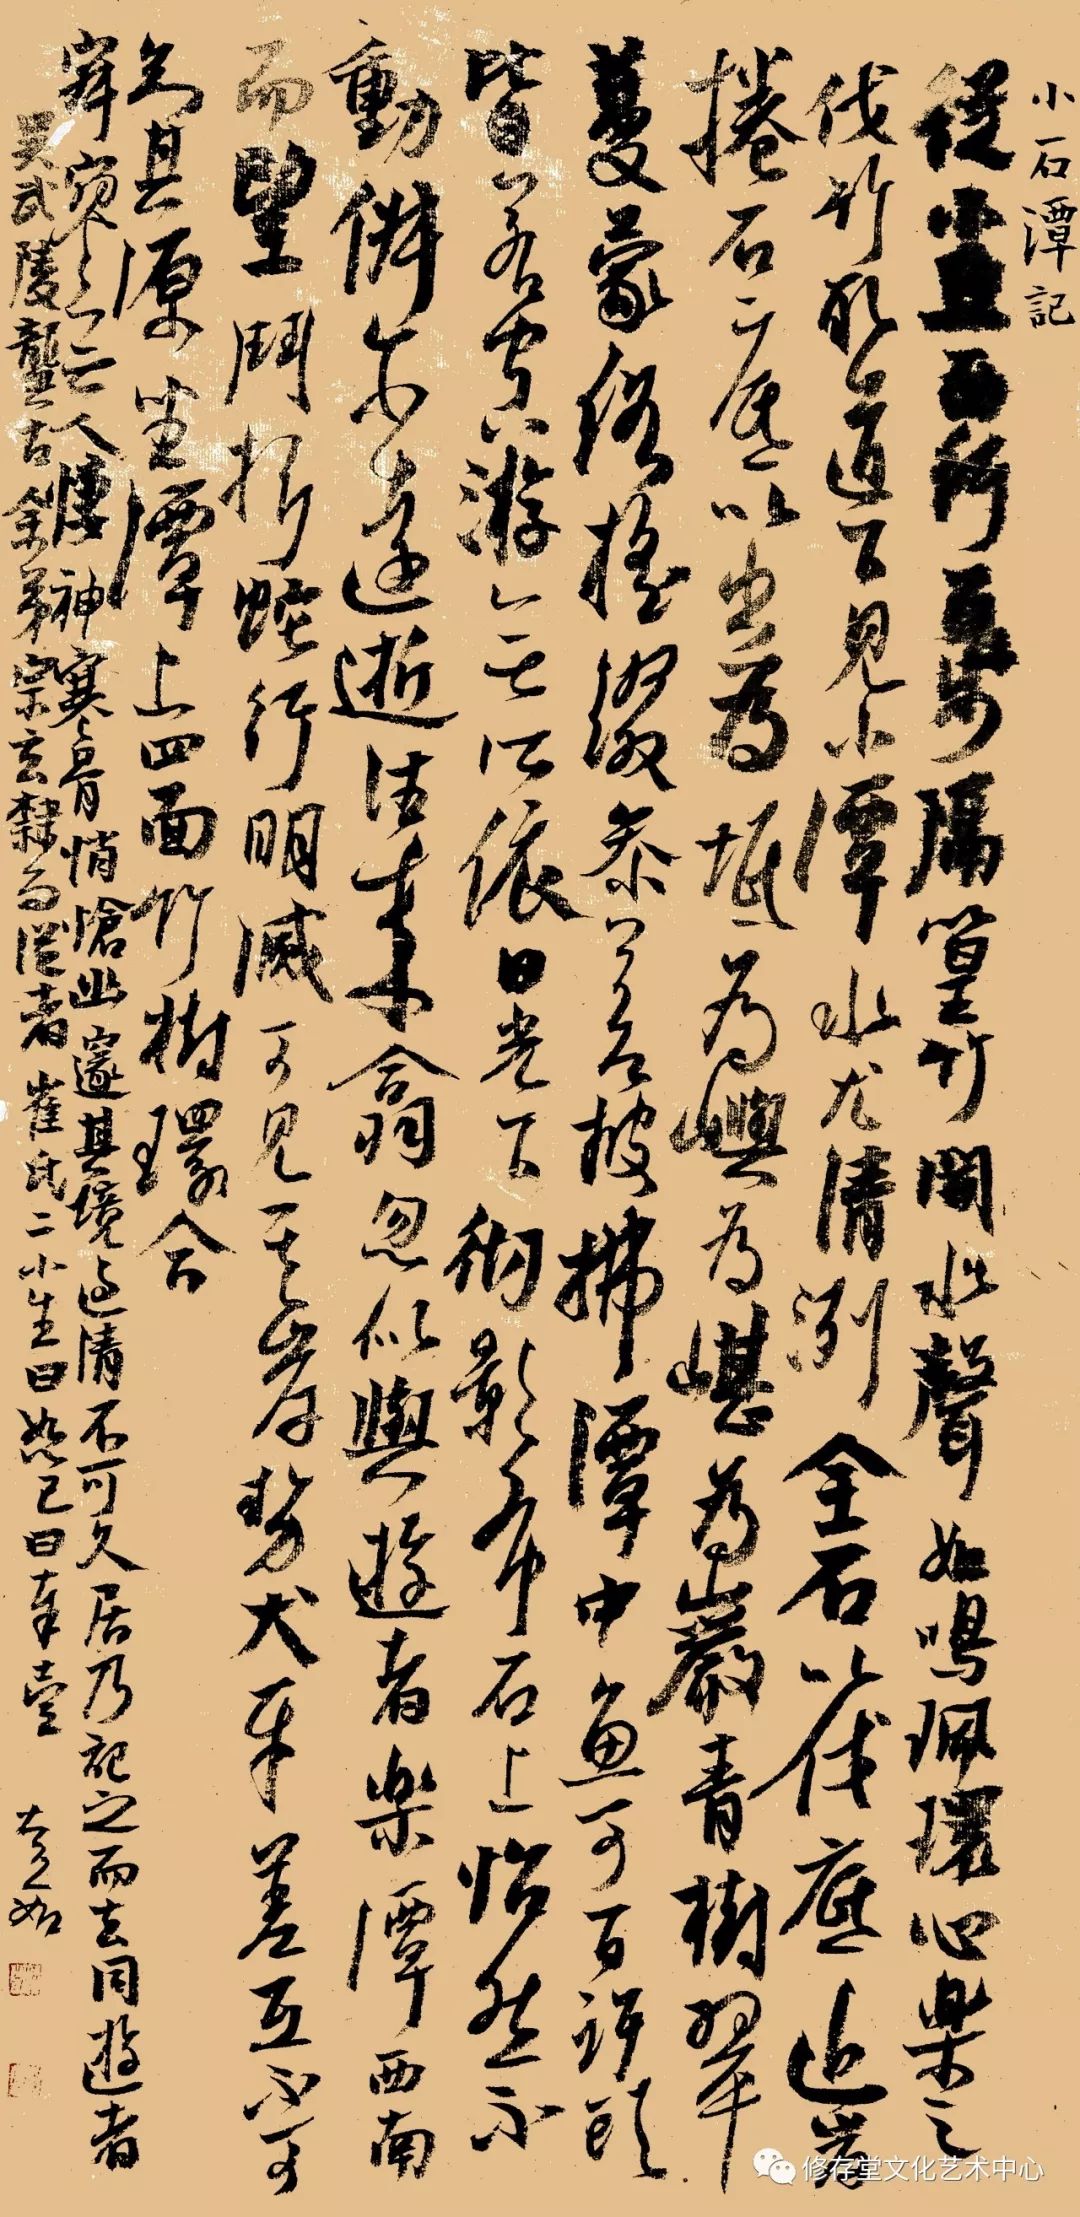 小石潭記
從小丘西行百步隔篁竹聞水聲如鳴珮環心樂之
伐竹取道下見小潭水尤清洌全石以底近岸
捲石底以出為坻為嶼為嵁為巖青樹翠
蔓蒙絡搖綴參差披拂潭中魚可百許頭
皆若空游無所依日光下彻影布石上怡然不
動俶尔遠逝往來翕忽似與遊者樂潭西南
而望鬥折蛇行明滅可見其岸勢犬牙差互不可
知其源坐潭上四面竹樹環合
寂寥無人悽神寒骨悄愴幽邃其境過清不可久居乃記之而去同遊者
吳武陵龔古余弟宗玄隸而從者崔氏二小生曰恕己曰奉壹
修存堂文化艺术中心